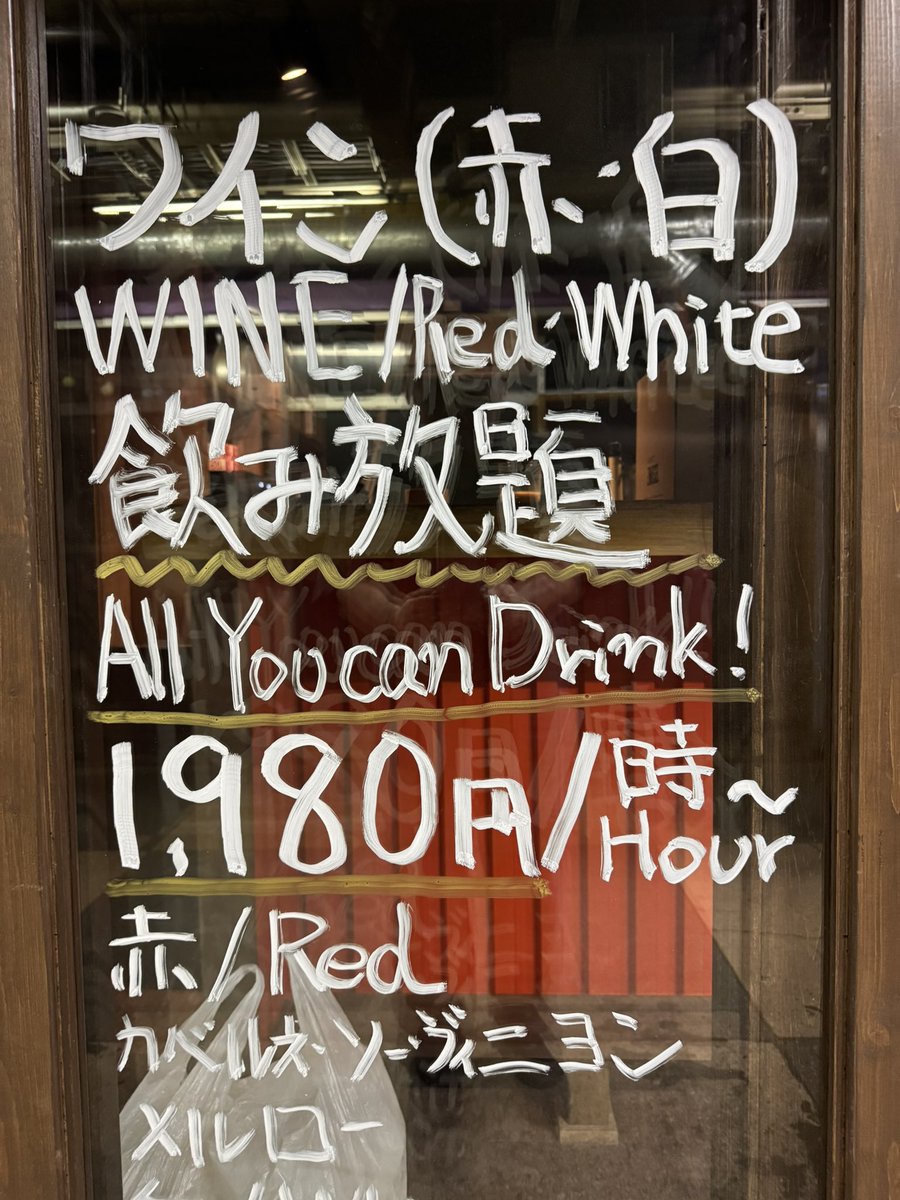 ワイン(赤・白)
WINE/Red・White
飲み放題
All You can Drink!
1,980円/時~
Hour
赤/Red
カベルネ・ソーヴィニヨン
メルロー